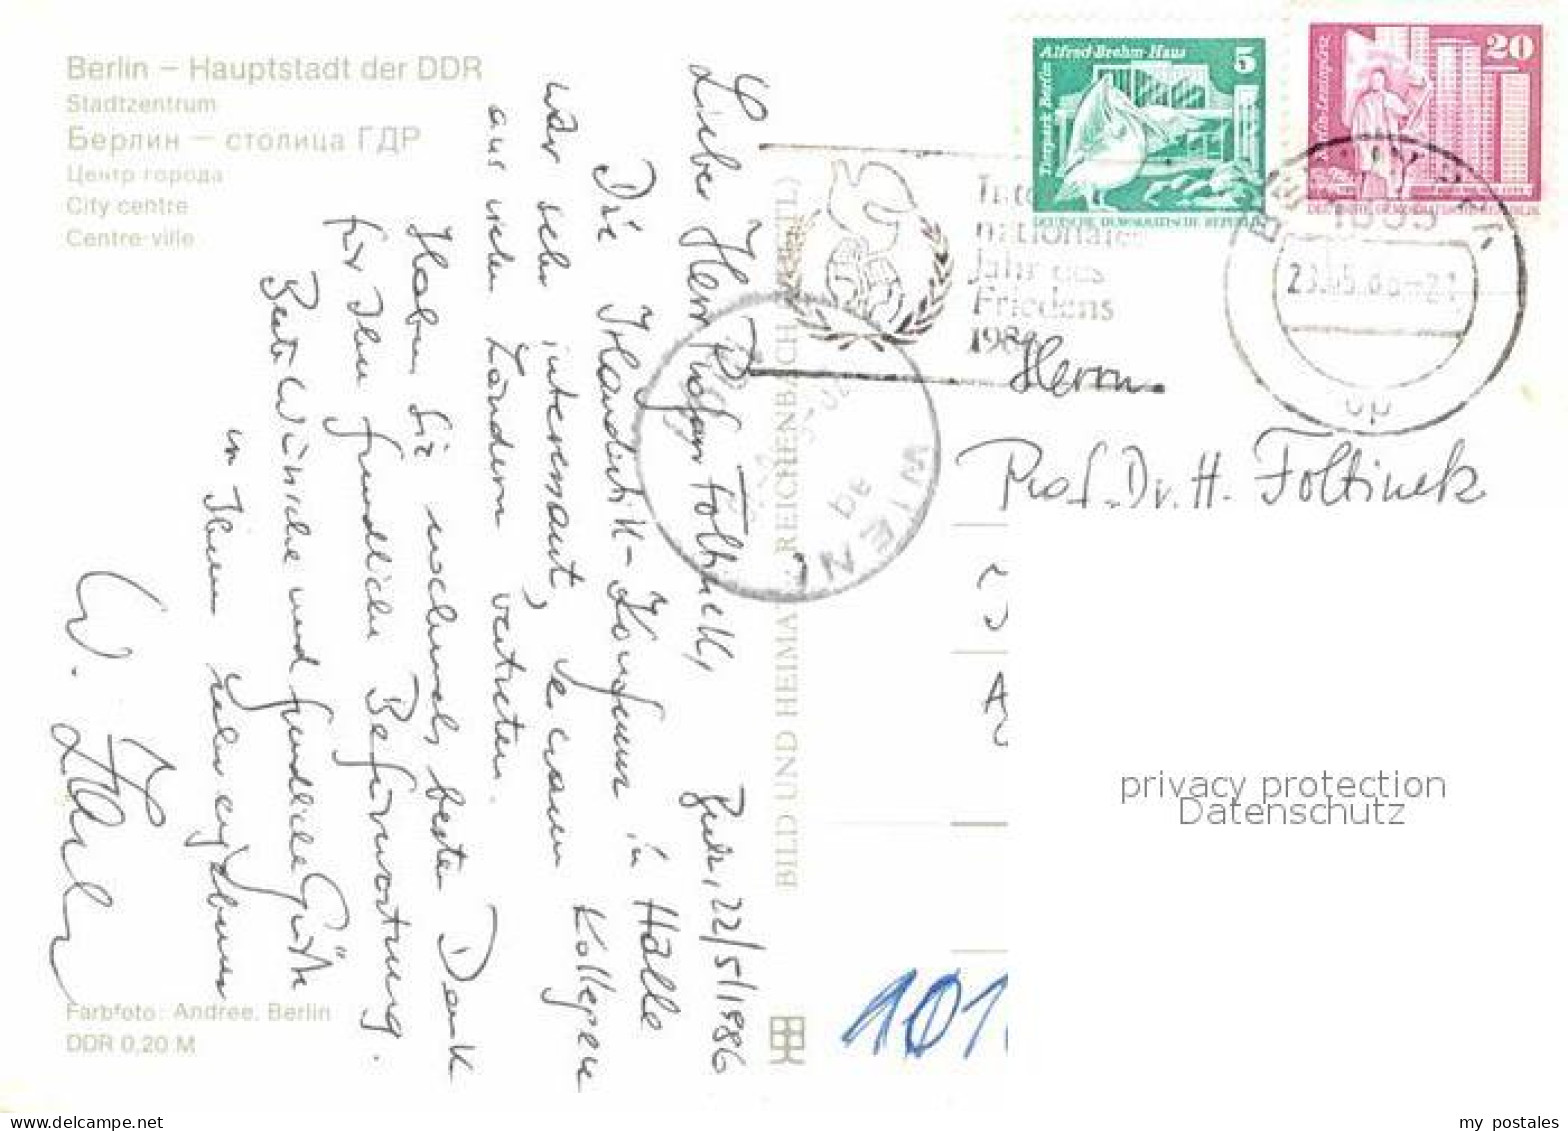 Berlin – Hauptstadt der DDR
Stadtzentrum
Берлин – столица ГДР
Центр города
City centre
Centre-ville
Lieber Herr Professor Foltinek,
22/5/1986
Die Irlandistik-Konferenz in Halle
war sehr interessant, es waren Kollegen
aus vielen Ländern vertreten.
Haben Sie nochmals besten Dank
für Ihre freundliche Befürwortung.
Beste Wünsche und freundliche Grüße
von Ihrem sehr ergebenen
W.
Farbfoto: Andree, Berlin
DDR 0,20 M
BILD UND HEIMAT REICHENBACH
Alfred-Brehm-Haus
5
Tierpark Berlin
DEUTSCHE DEMOKRATISCHE REPUBLIK
20
Berlin-Leninplatz
DEUTSCHE DEMOKRATISCHE REPUBLIK
Inter
nationales
Jahr des
Friedens
1986
23.05.86-21
WIEN
Herrn
Prof. Dr. H. Foltinek
101
privacy protection
Datenschutz
my postales